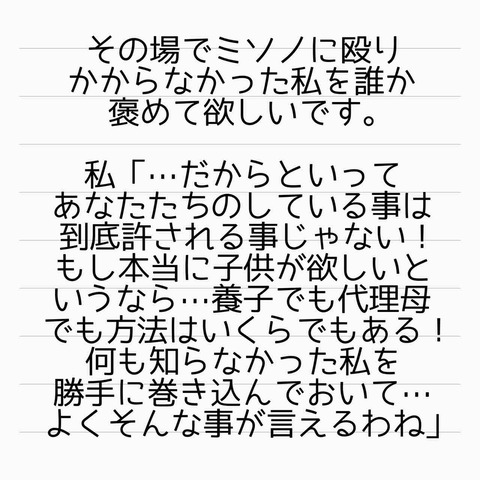 その場でミソノに殴り
かからなかった私を誰か
褒めて欲しいです。
私「…だからといって
あなたたちのしている事は
到底許される事じゃない！
もし本当に子供が欲しいと
いうなら…養子でも代理母
でも方法はいくらでもある！
何も知らなかった私を
勝手に巻き込んでおいて…
よくそんな事が言えるわね」